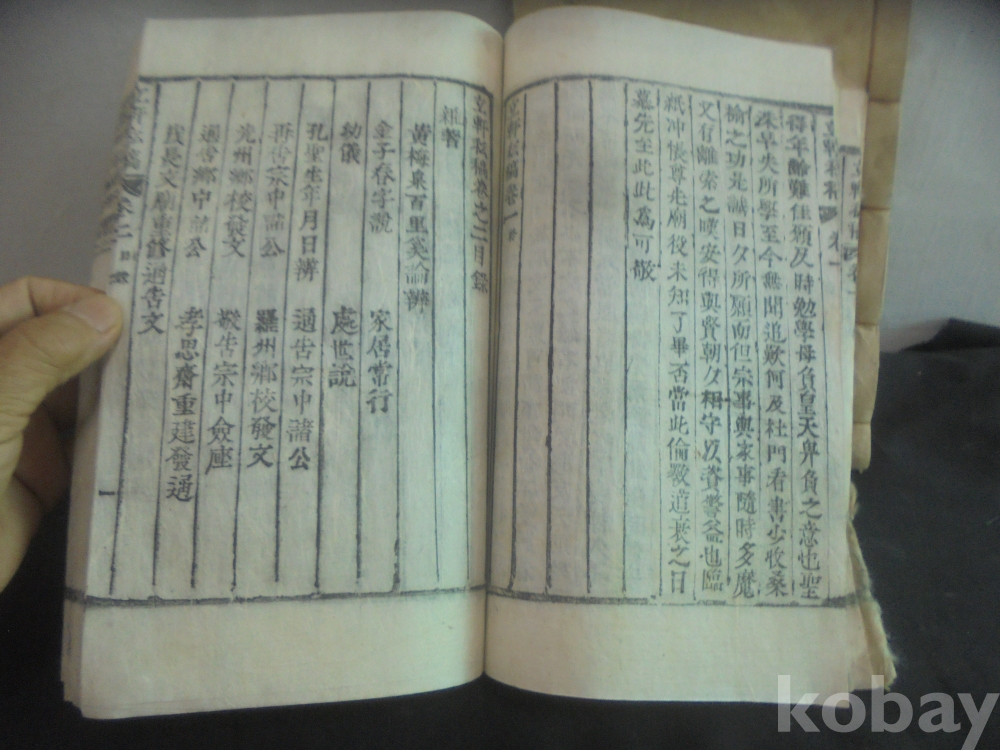 得年齡難住須及時勉學毋負皇天畀負之意也聖
深早失所學至今無聞追歎何及杜門看書少收桑
榆之功是誠日夕所願而但宗事與家事隨時多魔
又有離索之嘆安得與賢朝夕相守以資警益也臨
紙冲悵尊先廟役未知了畢否當此倫斁道衰之日
慕先至此此爲可敬
立軒私稿卷之二目錄
雜著
黃梅泉百里
論辨
金子春字說
家居常行
幼儀
處世說
孔聖生年月日辨
通告宗中諸公
再告宗中諸公
羅州鄉校發文
光州鄉校發文
敬告宗中僉座
通告鄉中諸公
孝思齋重建發通
文廟重修通告文
一
kobay